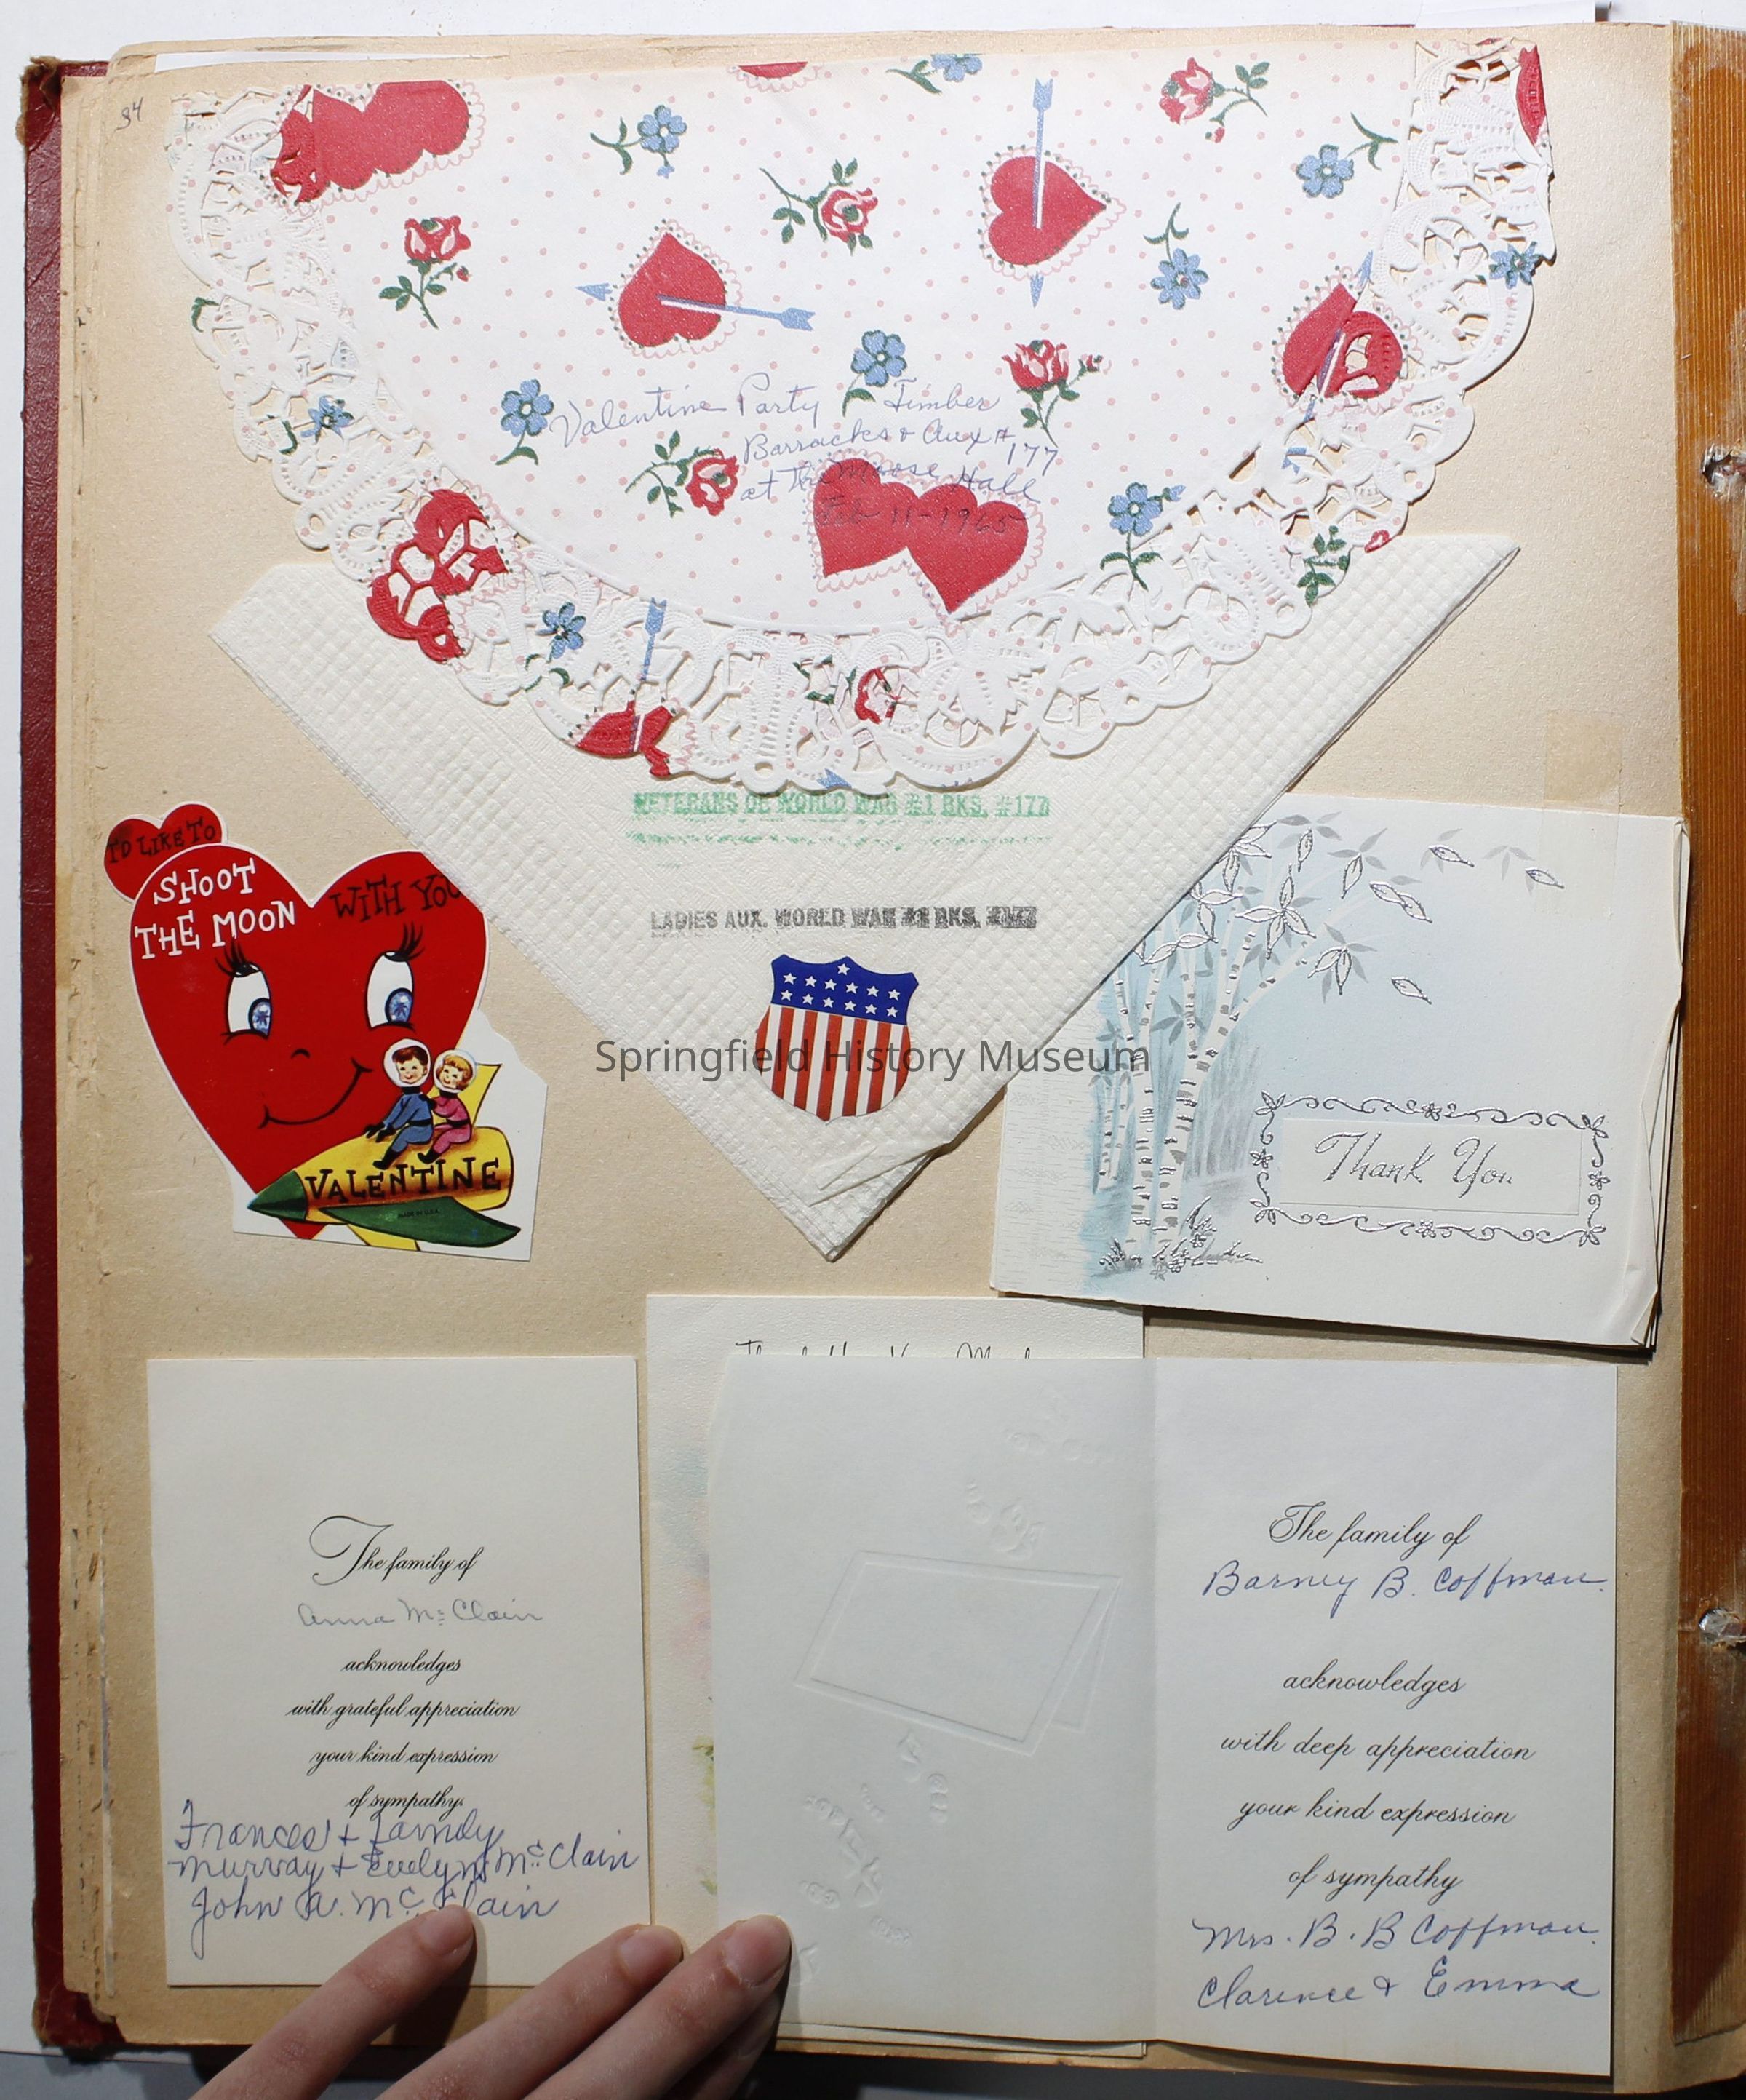 94
Valentine Party Timber
Barracks & Aux #177
at the Moose Hall
Feb 11-1965
VETERANS OF WORLD WAR #1 BKS. #177
LADIES AUX. WORLD WAR #1 BKS. #177
I'D LIKE TO
SHOOT
THE MOON
WITH YOU
VALENTINE
MADE IN U.S.A.
Springfield History Museum
Thank You
The family of
Anna McClain
acknowledges
with grateful appreciation
your kind expression
of sympathy.
Frances + Family
Murray + Evelyn McClain
John A. McClain
The family of
Barney B. Coffman.
acknowledges
with deep appreciation
your kind expression
of sympathy
Mrs. B. B Coffman.
Clarence & Emma